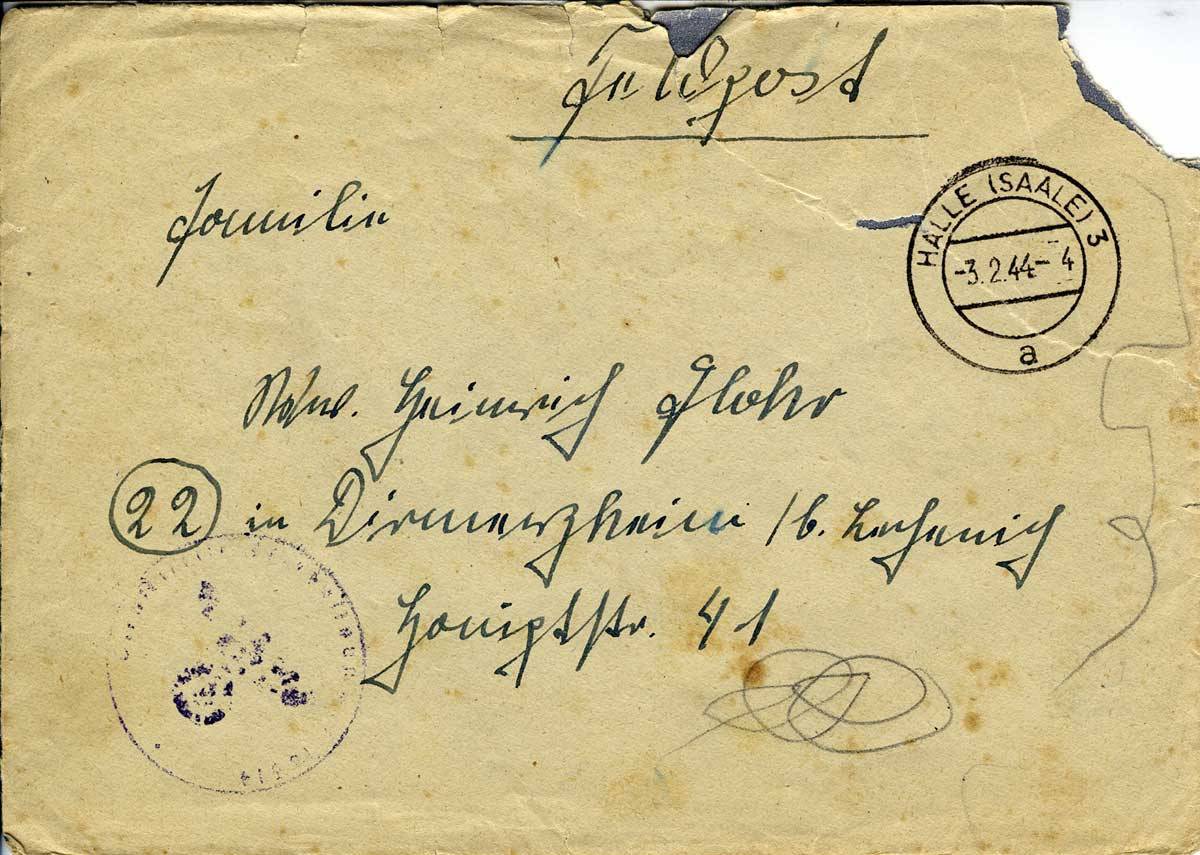 Feldpost
HALLE (SAALE) 3
-3.2.44- 4
a
Familie
Wwe. Heinrich Flohr
22 in Dirmerzheim /b. Lechenich
Hauptstr. 41